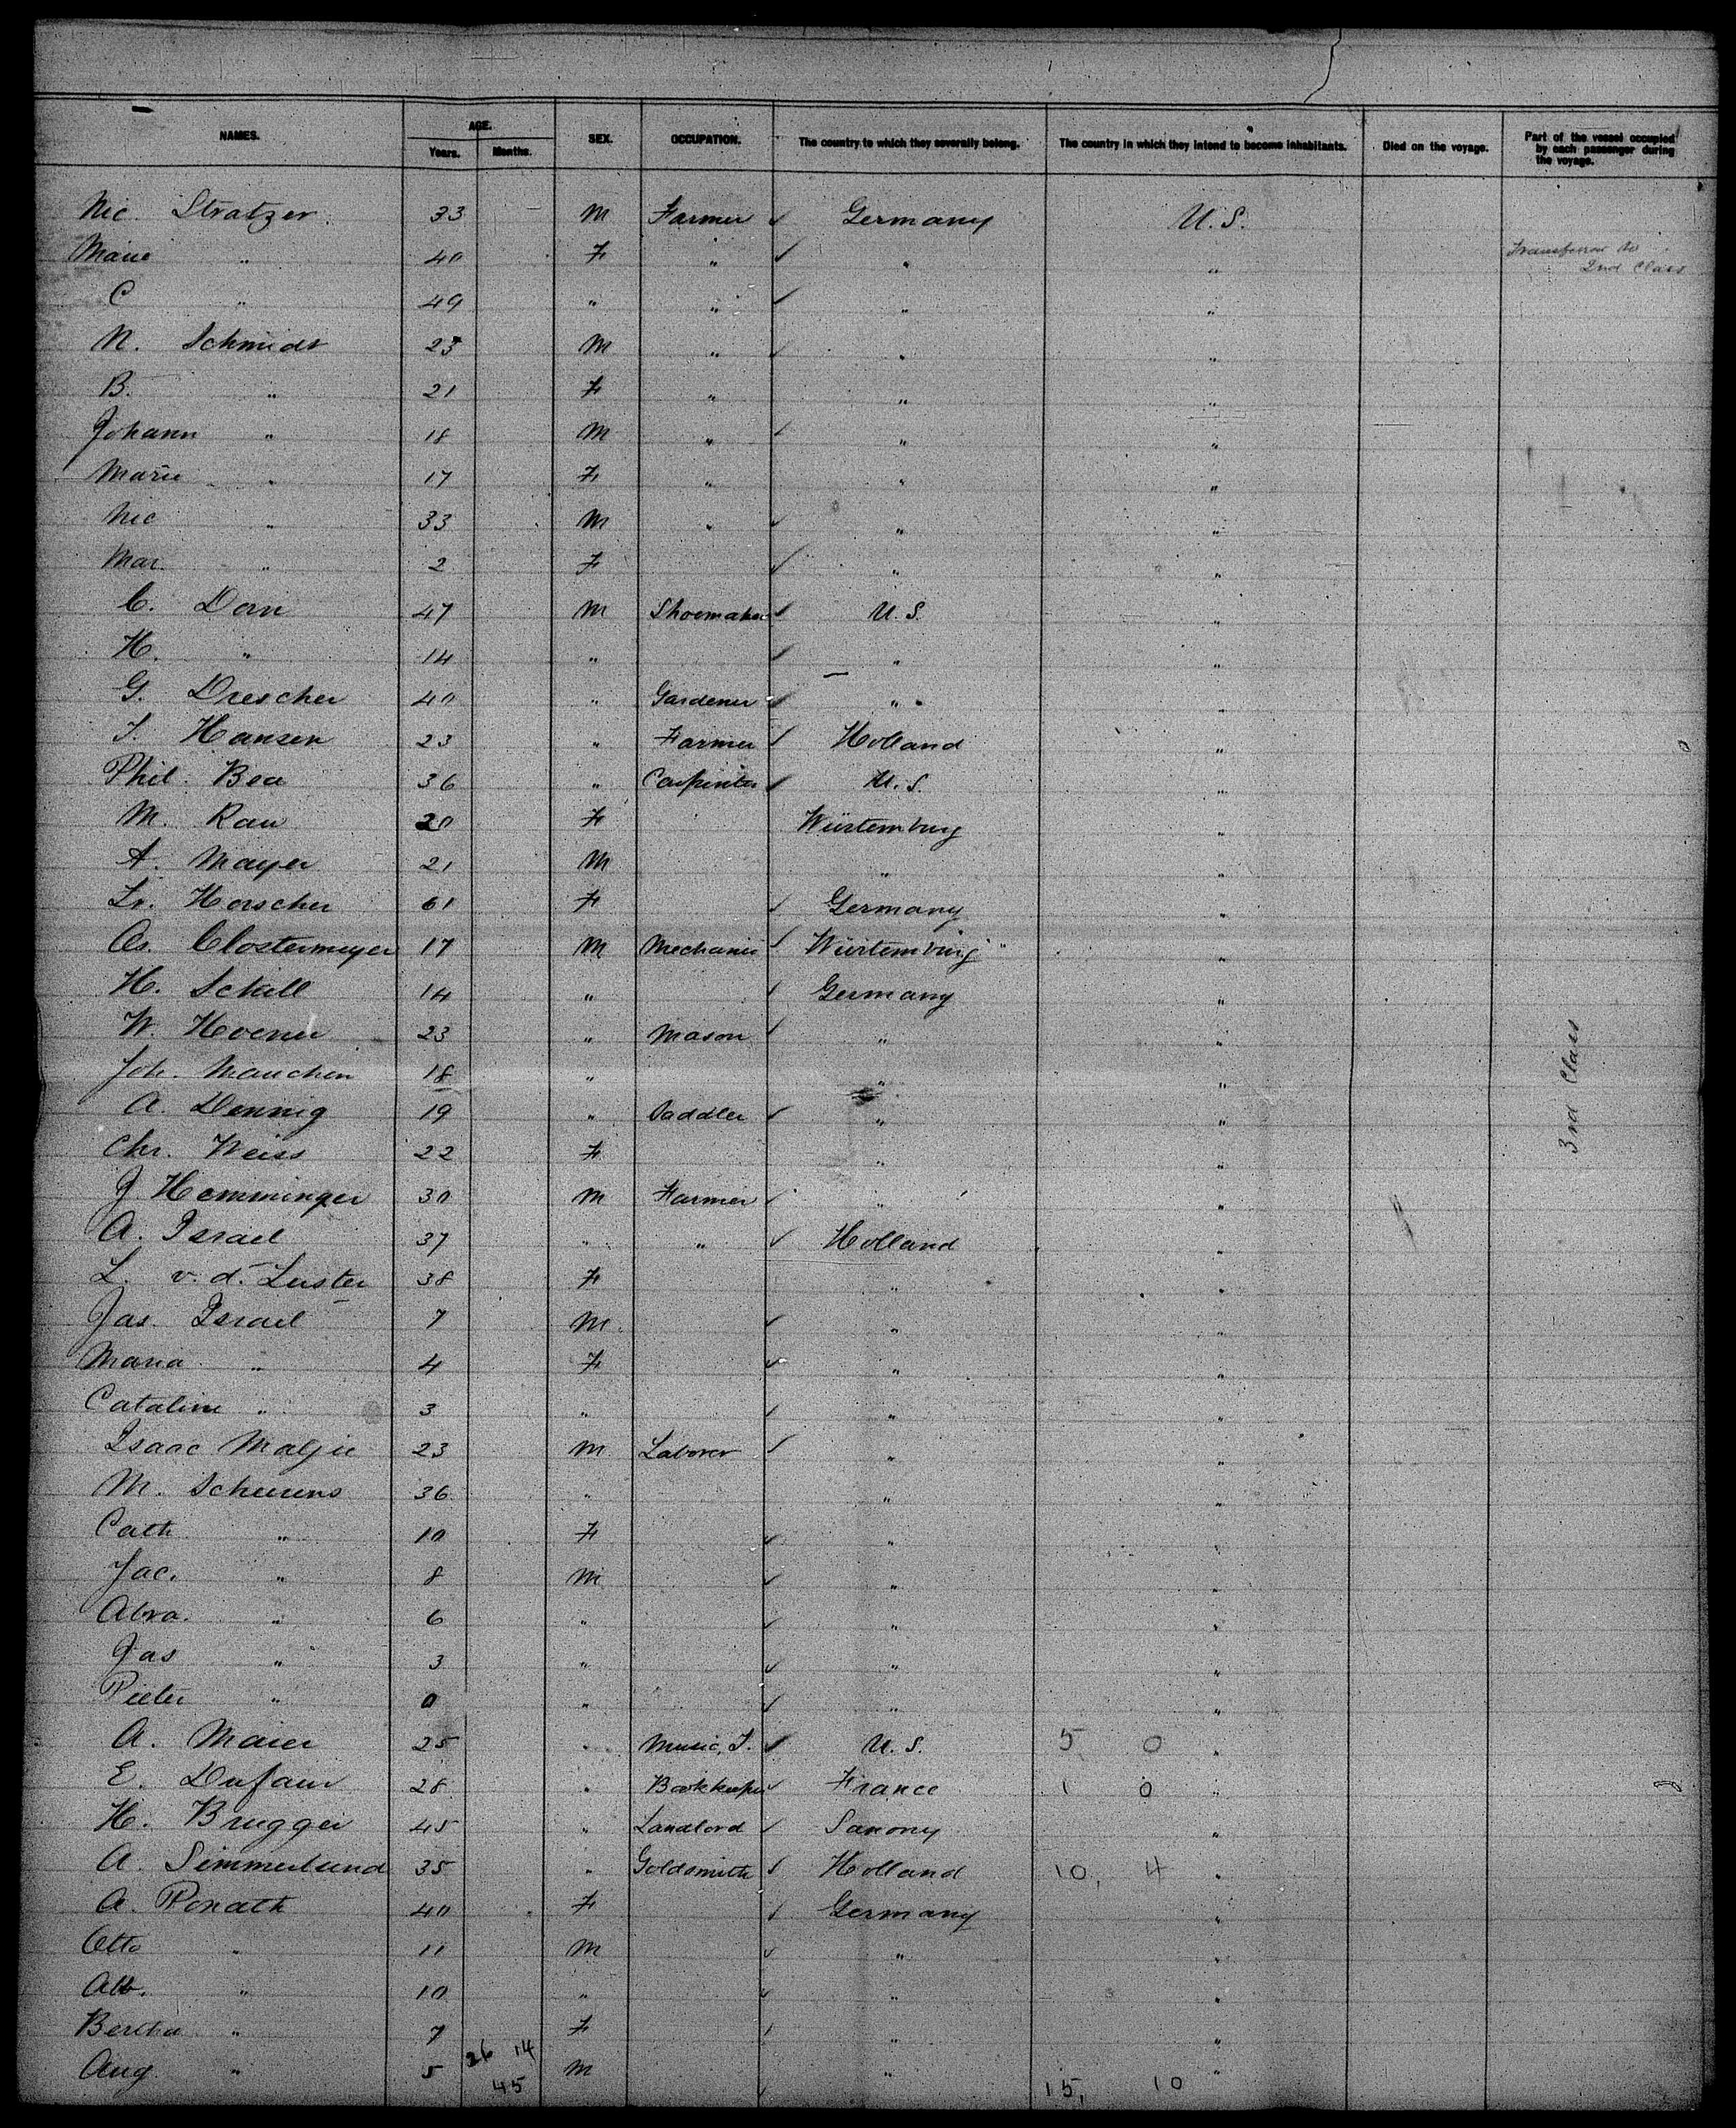 NAMES. AGE. SEX. OCCUPATION. The country to which they severally belong. The country in which they intend to become inhabitants. Died on the voyage. Part of the vessel occupied by each passenger during the voyage.
Years. Months.
Nic. Stratzer 33 M Farmer ✓ Germany U.S.
Marie " 40 F " ✓ " " 2nd Class
C " 49 " " ✓ " "
N. Schmidt 25 M " ✓ " "
B. " 21 F " " "
Johann " 18 M " ✓ " "
Marie " 17 F " " "
Nic " 33 M " ✓ " "
Mar. " 2 F ✓ " "
C. Dorn 47 M Shoemaker ✓ U.S. "
H. " 14 " ✓ " "
G. Drescher 40 " Gardener ✓ " "
J. Hansen 23 " Farmer ✓ Holland "
Phil. Bea 36 " Carpenter ✓ U.S. "
M. Rau 20 F Würtemburg "
A. Mayer 21 M " "
Fr. Horscher 61 F ✓ Germany "
Cs. Clostermeyer 17 M Mechanic ✓ Würtemburg "
H. Schill 14 " ✓ Germany "
W. Hoerner 23 " Mason ✓ " "
Joh. Mauchen 18 " " "
A. Dennig 19 " Saddler ✓ " "
Chr. Weiss 22 F " "
J Hemminger 30 M Farmer ✓ " "
A. Israel 37 " " ✓ Holland "
L. v. d. Luster 38 F " "
Jas. Israel 7 M ✓ " "
Maria " 4 F ✓ " "
Cataline " 3 " ✓ " "
Isaac Maljie 23 M Laborer ✓ " "
M. Scheurens 36 " " "
Cath " 10 F ✓ " "
Jac. " 8 M ✓ " "
Abra. " 6 " ✓ " "
Jas " 3 " ✓ " "
Pieter " 0 " ✓ " "
A. Maier 25 " Music, T. ✓ U.S. 5 0 "
E. Dufaur 28 " Bookkeeper ✓ France 1 0 "
H. Brugger 45 " Landlord ✓ Saxony "
A. Simmerlund 35 " Goldsmith ✓ Holland 10, 4 "
A. Ponath 40 F ✓ Germany "
Otto " 11 M ✓ " "
Alb. " 10 " ✓ " "
Bertha " 7 F ✓ " "
Aug. " 5 M ✓ " "
26 14
45
15, 10
3rd Class